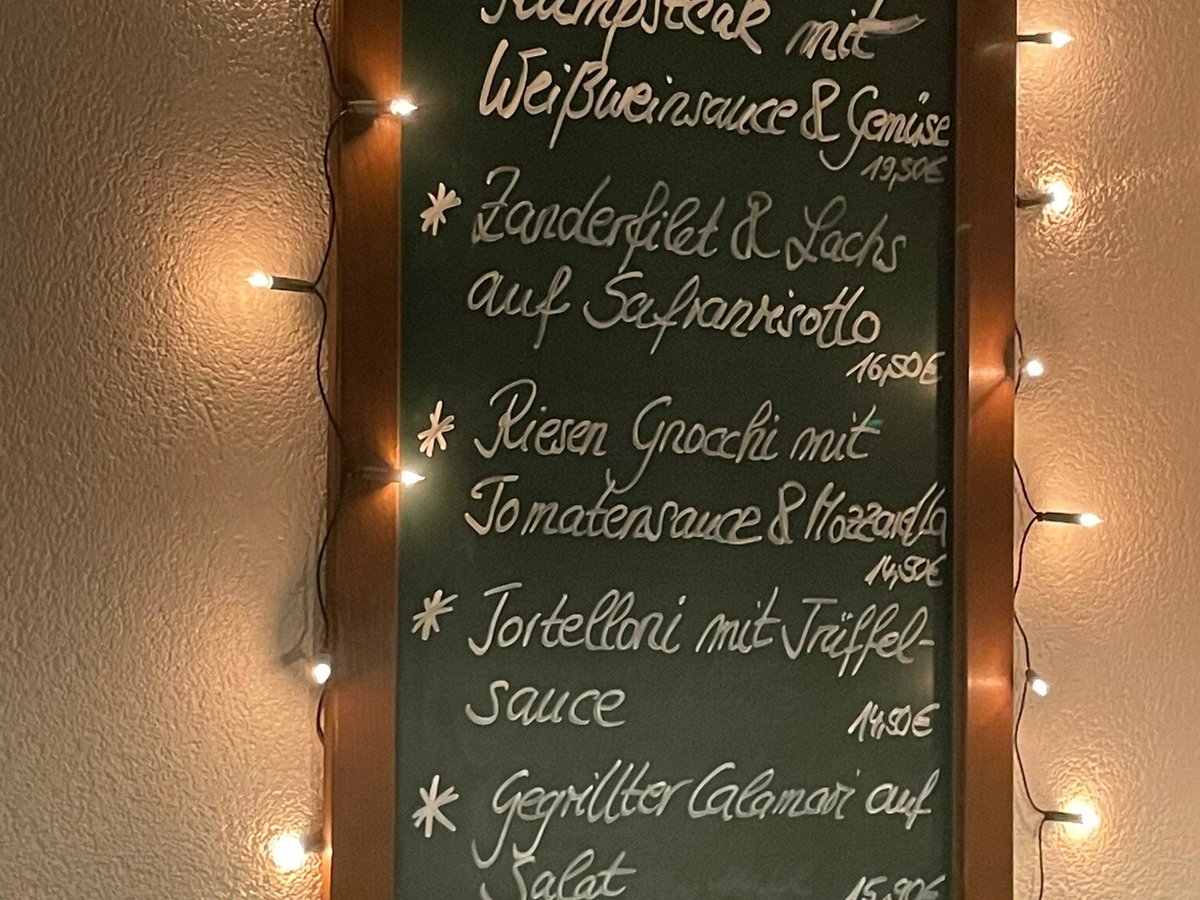 Rumpsteak mit
Weißweinsauce & Gemüse
19,50€
* Zanderfilet & Lachs
auf Safranrisotto
16,50€
* Riesen Gnocchi mit
Tomatensauce & Mozzarella
14,50€
* Tortelloni mit Trüffel-
sauce 14,50€
* Gegrillter Calamari auf
Salat 15,90€